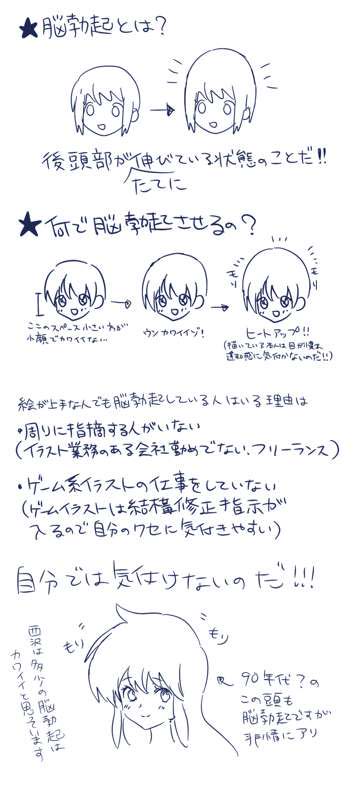 ★脳勃起とは?
後頭部が伸びている状態のことだ!!
たてに
★何で脳勃起させるの?
ここのスペース小さい方が
小顔でカワイイな…
ウンカワイイゾ!
モリ
モリ
ヒートアップ!!
(描いている人は目が慣れ
違和感に気付かないのだ!!)
絵が上手な人でも脳勃起している人はいる 理由は
・周りに指摘する人がいない
(イラスト業務のある会社勤めでない、フリーランス)
・ゲーム系イラストの仕事をしていない
(ゲームイラストは結構修正指示が
入るので自分のクセに気付きやすい)
自分では気付けないのだ!!!
もり
もり
90年代?の
この頭も
脳勃起ですが
非常にアリ
西沢は多少の脳勃起は
カワイイと思っています